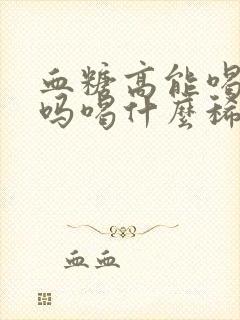 血糖高能喝
吗喝什麼稀
血血